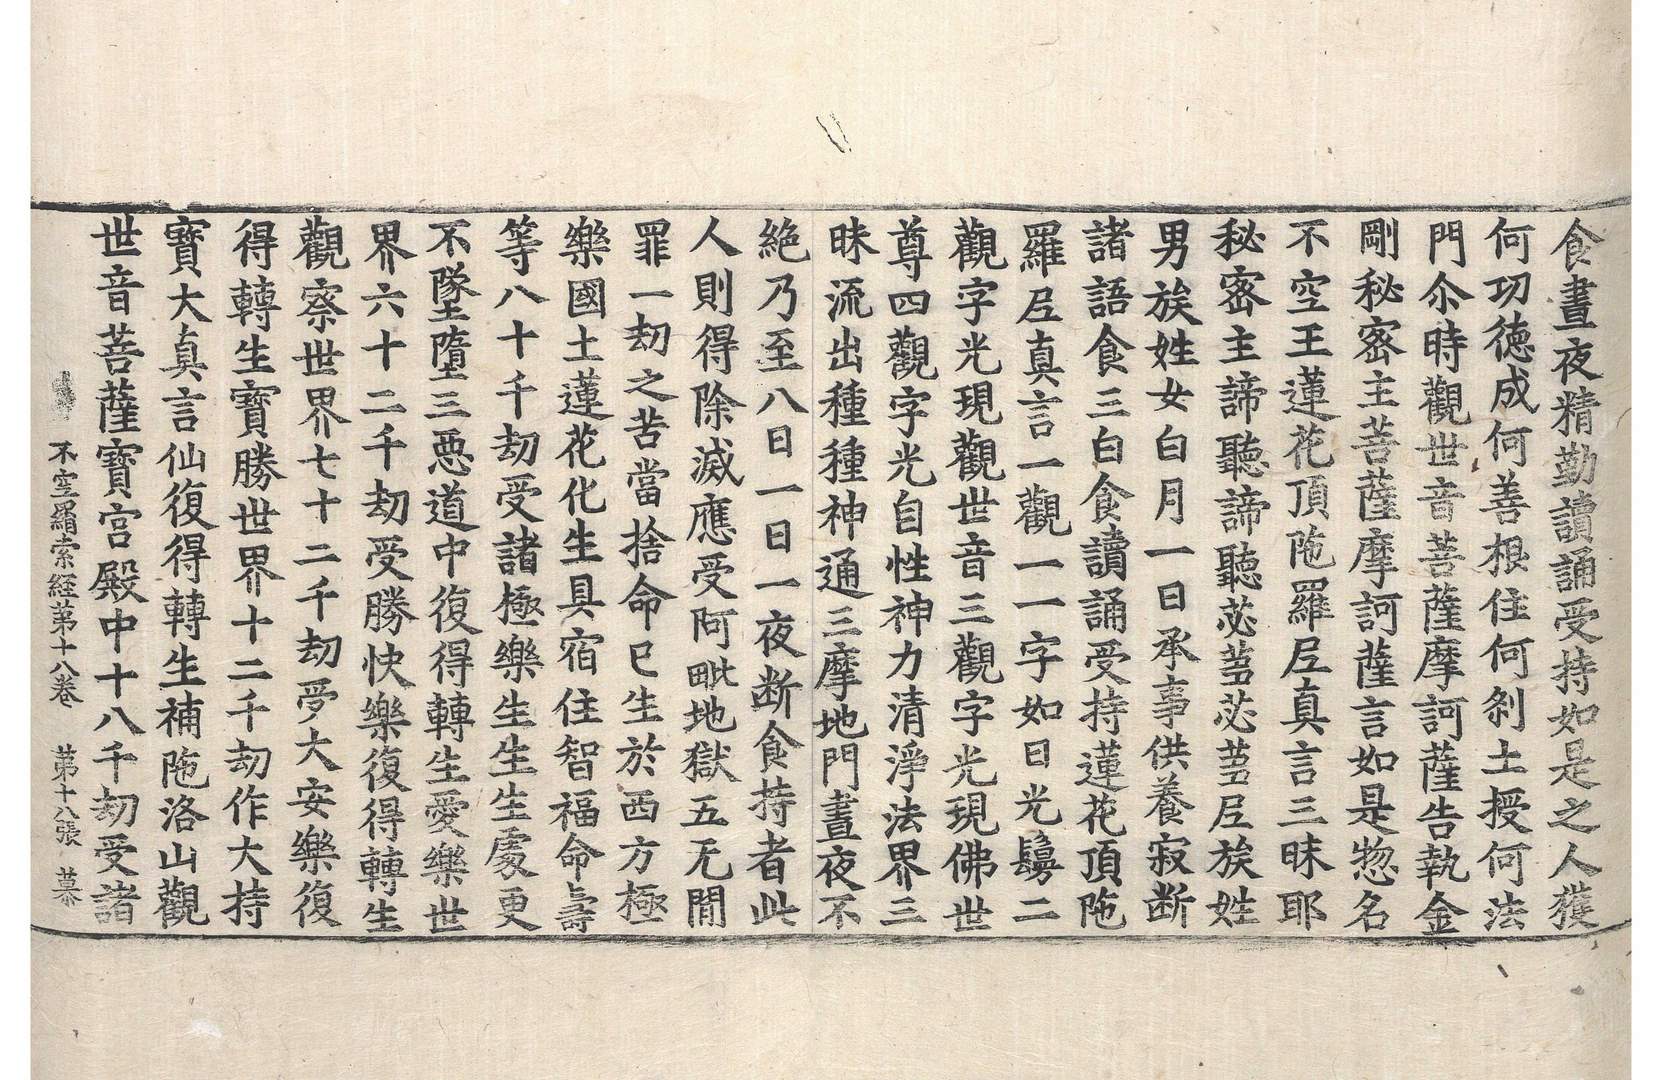 食晝夜精勤讀誦受持如是之人獲
何功德成何善根住何刹土授何法
門尒時觀世音菩薩摩訶薩告執金
剛秘密主菩薩摩訶薩言如是惣名
不空王蓮花頂陁羅𡰱真言三昧耶
秘密主諦聽諦聽苾蒭苾蒭𡰱族姓
男族姓女白月一日承事供養寂断
諸語食三白食讀誦受持蓮花頂陁
羅𡰱真言一觀一一字如日光鬘二
觀字光現觀世音三觀字光現佛世
尊四觀字光自性神力清淨法界三
昧流出種種神通三摩地門晝夜不
絕乃至八日一日一夜断食持者此
人則得除滅應受阿毗地獄五无間
罪一劫之苦當捨命已生於西方極
樂國土蓮花化生具宿住智福命壽
等八十千劫受諸極樂生生生處更
不墜墮三惡道中復得轉生愛樂世
界六十二千劫受勝快樂復得轉生
觀察世界七十二千劫受大安樂復
得轉生寶勝世界十二千劫作大持
寶大真言仙復得轉生補陁洛山觀
世音菩薩寶宫殿中十八千劫受諸
不空羂索經苐十八卷 苐十八張 慕